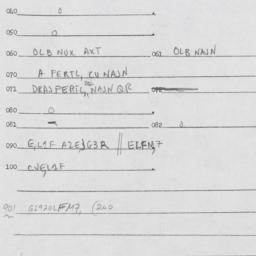 040 0
050 0
060 OLB NUK AXT 061 OLB NAJN
070 A FERTL, KU NAJN
071 DRAJ PERIL, NAJN QR 072
080 0
081 – 082 0
090 E,L1F AZE}G3R // ELFM,7
100 C,VE,L1F
901 G1920LFM7, (200